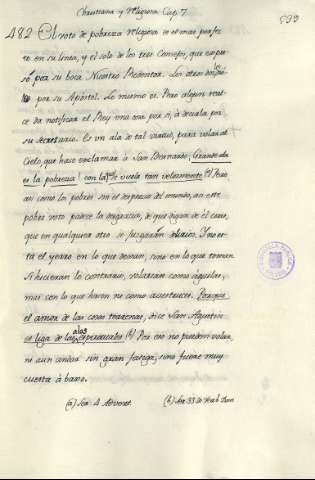 Christiana y Religiosa Cap. 7.
599
482 El voto de pobreza religiosa es el mas perfec
to en su linea, y el solo de los tres Consejos, que expre
só por su boca Nuestro Redentor. Los otros
por su Apóstol. Lo mismo es. Pero alguna
ce da notificar el Rey una cosa por sí, ó decirla por
su Secretario. Es un ala de tal virtud, para volar al
Cielo, que hace exclamar á San Bernardo: Grande ala
es la pobreza! con la q.e se vuela tan velozmente (a) Pero
asi como los pobres son el desprecio del mundo, asi este
pobre voto padece la desgracia, de que digan de él cosas,
que en qualquiera otro se juzgarán delirios. Y no es
tá el yerro en lo que dexan, sino en lo que toman.
Si hicieran lo contrario, volarian como águilas,
mas con lo que hacen no como avestruces. Porque
el amor de las cosas terrenas, dice San Agustin
es liga de las alas espirituales (b) Por eso no pueden volar,
ni aun andar sin gran fatiga, sino fuere muy
cuesta á baxo.
(a) Ser. 4 Advent.
(b) Ser. 33 de Verb. Dom